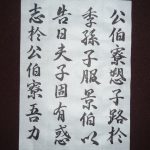 公伯寮愬子路於
季孫子服景伯以
告曰夫子固有惑
志於公伯寮吾力